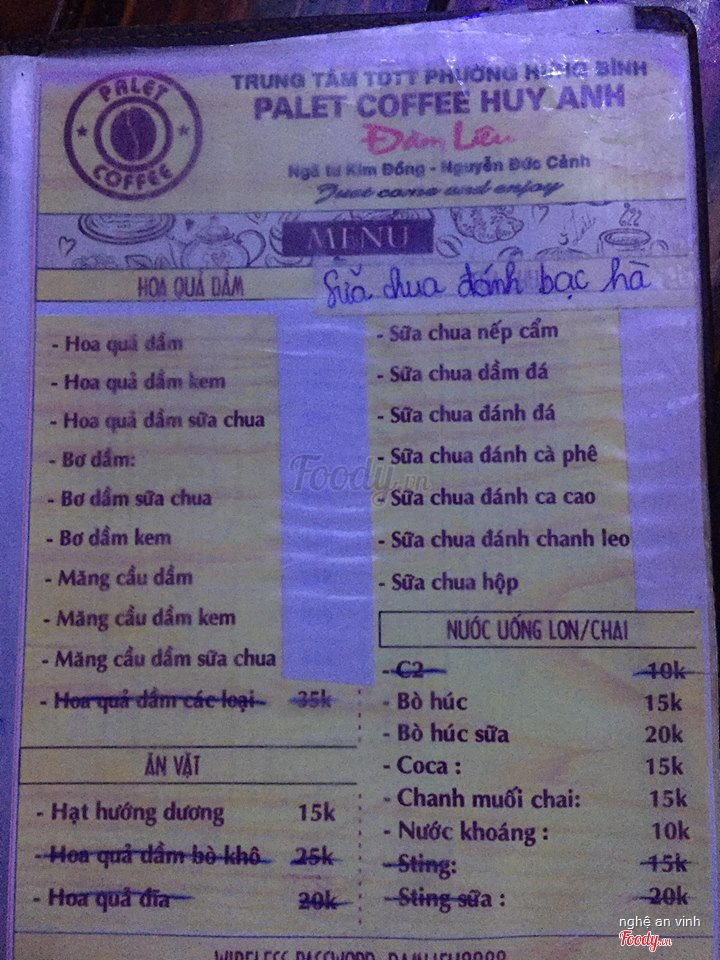 PALET COFFEE
TRUNG TÂM TDTT PHƯỜNG HƯNG BÌNH
PALET COFFEE HUY ANH
Đàm Liên
Ngã tư Kim Đồng - Nguyễn Đức Cảnh
Just come and enjoy
MENU
HOA QUẢ DẦM
Sữa chua đánh bạc hà
- Hoa quả dầm
- Hoa quả dầm kem
- Hoa quả dầm sữa chua
- Bơ dầm:
- Bơ dầm sữa chua
- Bơ dầm kem
- Măng cầu dầm
- Măng cầu dầm kem
- Măng cầu dầm sữa chua
- Hoa quả dầm các loại 35k
ĂN VẶT
- Hạt hướng dương 15k
- Hoa quả dầm bò khô 25k
- Hoa quả đĩa 20k
- Sữa chua nếp cẩm
- Sữa chua dầm đá
- Sữa chua đánh đá
- Sữa chua đánh cà phê
- Sữa chua đánh ca cao
- Sữa chua đánh chanh leo
- Sữa chua hộp
NƯỚC UỐNG LON/CHAI
- C2 10k
- Bò húc 15k
- Bò húc sữa 20k
- Coca : 15k
- Chanh muối chai: 15k
- Nước khoáng : 10k
- Sting: 15k
- Sting sữa : 20k
WIRELESS PASSWORD
Foody.vn
nghệ an vinh
Foody.vn